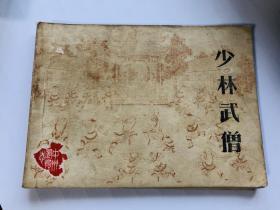 少林武僧